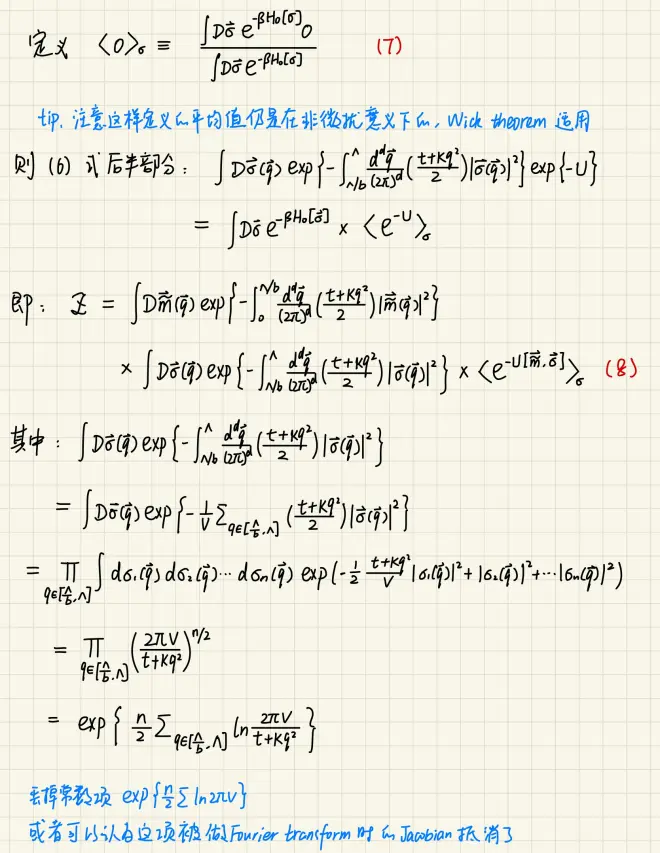 定义 <O>_σ ≡ ∫Dσ⃗ e^{-βH₀[σ]} O / ∫Dσ⃗ e^{-βH₀[σ]} (7)
tip. 注意这样定义的平均值仍是在非微扰意义下的, Wick theorem 适用
则 (6) 式后半部分: ∫Dσ⃗(q⃗) exp{-∫_{Λ/b}^{Λ} d^dq⃗/(2π)^d ((t+Kq²)/2) |σ⃗(q⃗)|²} exp{-U}
= ∫Dσ⃗ e^{-βH₀[σ⃗]} × <e^{-U}>_σ
即: Z = ∫Dm⃗(q⃗) exp{-∫_0^{Λ/b} d^dq⃗/(2π)^d ((t+Kq²)/2) |m⃗(q⃗)|²}
× ∫Dσ⃗(q⃗) exp{-∫_{Λ/b}^{Λ} d^dq⃗/(2π)^d ((t+Kq²)/2) |σ⃗(q⃗)|²} × <e^{-U[m⃗,σ⃗]}>_σ (8)
其中: ∫Dσ⃗(q⃗) exp{-∫_{Λ/b}^{Λ} d^dq⃗/(2π)^d ((t+Kq²)/2) |σ⃗(q⃗)|²}
= ∫Dσ⃗(q⃗) exp{-1/V Σ_{q∈[Λ/b,Λ]} ((t+Kq²)/2) |σ⃗(q⃗)|²}
= ∏_{q∈[Λ/b,Λ]} ∫ dσ₁(q⃗) dσ₂(q⃗)⋯ dσn(q⃗) exp(-1/2 (t+Kq²)/V |σ₁(q⃗)|²+|σ₂(q⃗)|²+⋯|σn(q⃗)|²)
= ∏_{q∈[Λ/b,Λ]} (2πV/(t+Kq²))^{n/2}
= exp{ n/2 Σ_{q∈[Λ/b,Λ]} ln 2πV/(t+Kq²) }
丢掉常数项 exp{n/2 Σ ln2πV}
或者可以认为这项被做Fourier transform时的Jacobian抵消了